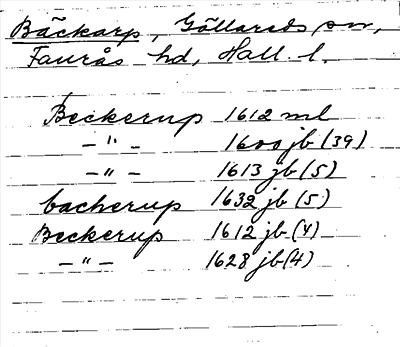 Bäckarp, Gällareds sn,
Faurås hd, Hall. l.
Beckerup 1612 ml
—"— 1600 jb (39)
—"— 1613 jb (5)
backerup 1632 jb (5)
Beckerup 1612 jb (4)
—"— 1628 jb (4)